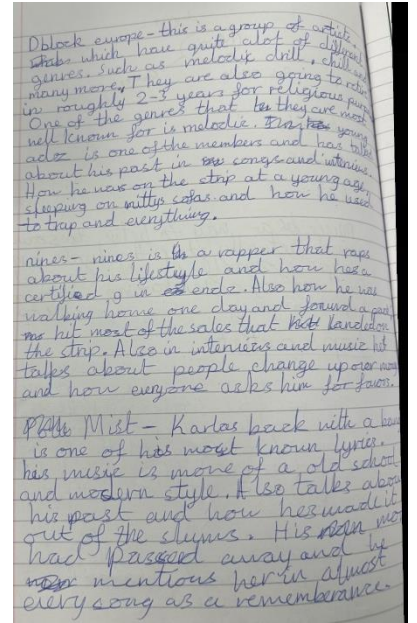 Dblock europe - this is a group of artists.
which have quite alot of different
genres. Such as melodic drill, chill and
many more. They are also going to retire
in roughly 2-3 years for religious
One of the genres that they are most
well known for is melodic. young
adz is one of the members and has talked
about his past in songs and interviews.
How he was on the strip at a young age,
sleeping on mittys sofas and how he used
to trap and everything.
nines - nines is a rapper that raps
about his lifestyle and how hes a
certified g in endz. Also how he was
walking home one day and found a
hit most of the sales that landed on
the strip. Also in interviews and music
talks about people change up over
and how everyone asks him for favors.
Mist - Karlas back with a
is one of his most known lyrics.
his music is more of a old school
and modern style. Also talks about
his past and how hes made it
out of the slums. His
had passed away and he
mentions her in almost
every song as a rememberance.